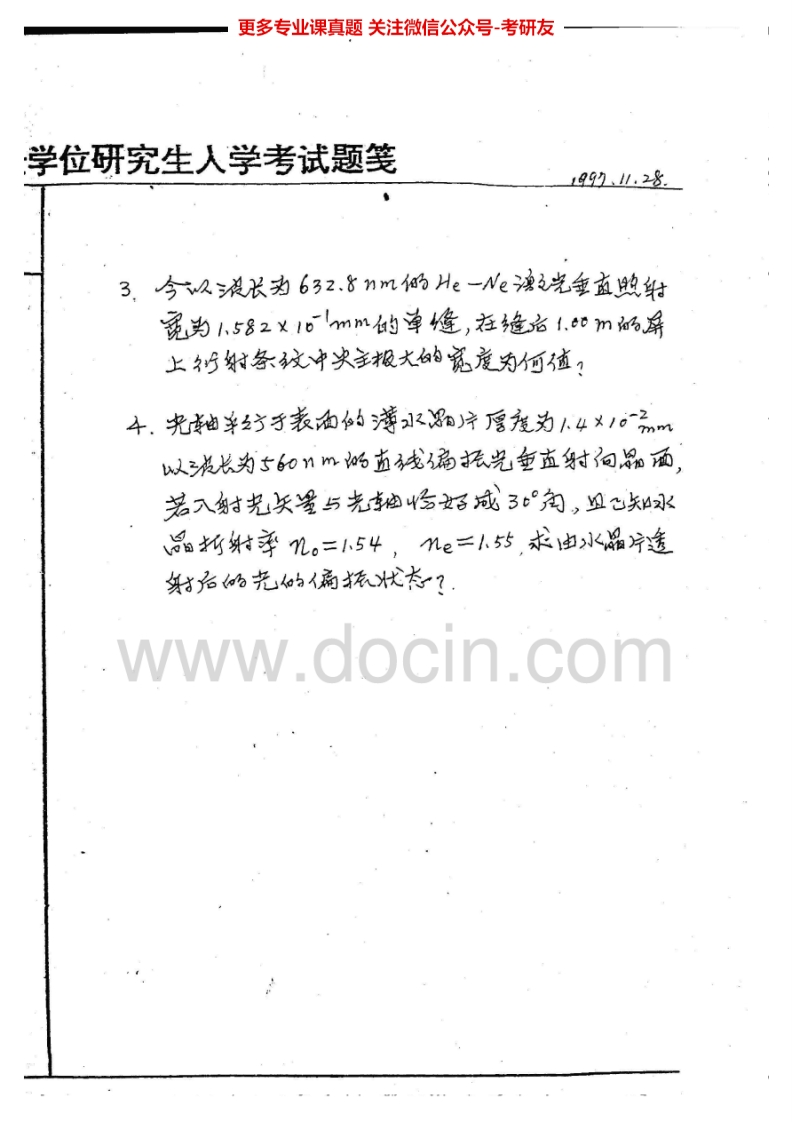 更多专业课真题 关注微信公众号-考研友
学位研究生入学考试题笺
1997.11.28.
3. 今以波长为632.8nm的He-Ne激光垂直照射
宽为1.582×10⁻¹mm的单缝,在缝后1.00m的屏
上衍射条纹中央主极大的宽度为何值?
4. 光轴平行于表面的薄水晶片厚度为1.4×10⁻²mm
以波长为560nm的直线偏振光垂直射向晶面,
若入射光矢量与光轴恰好成30°角,且已知水
晶折射率 n₀=1.54, ne=1.55,求由水晶片透
射后的光的偏振状态?
www.docin.com